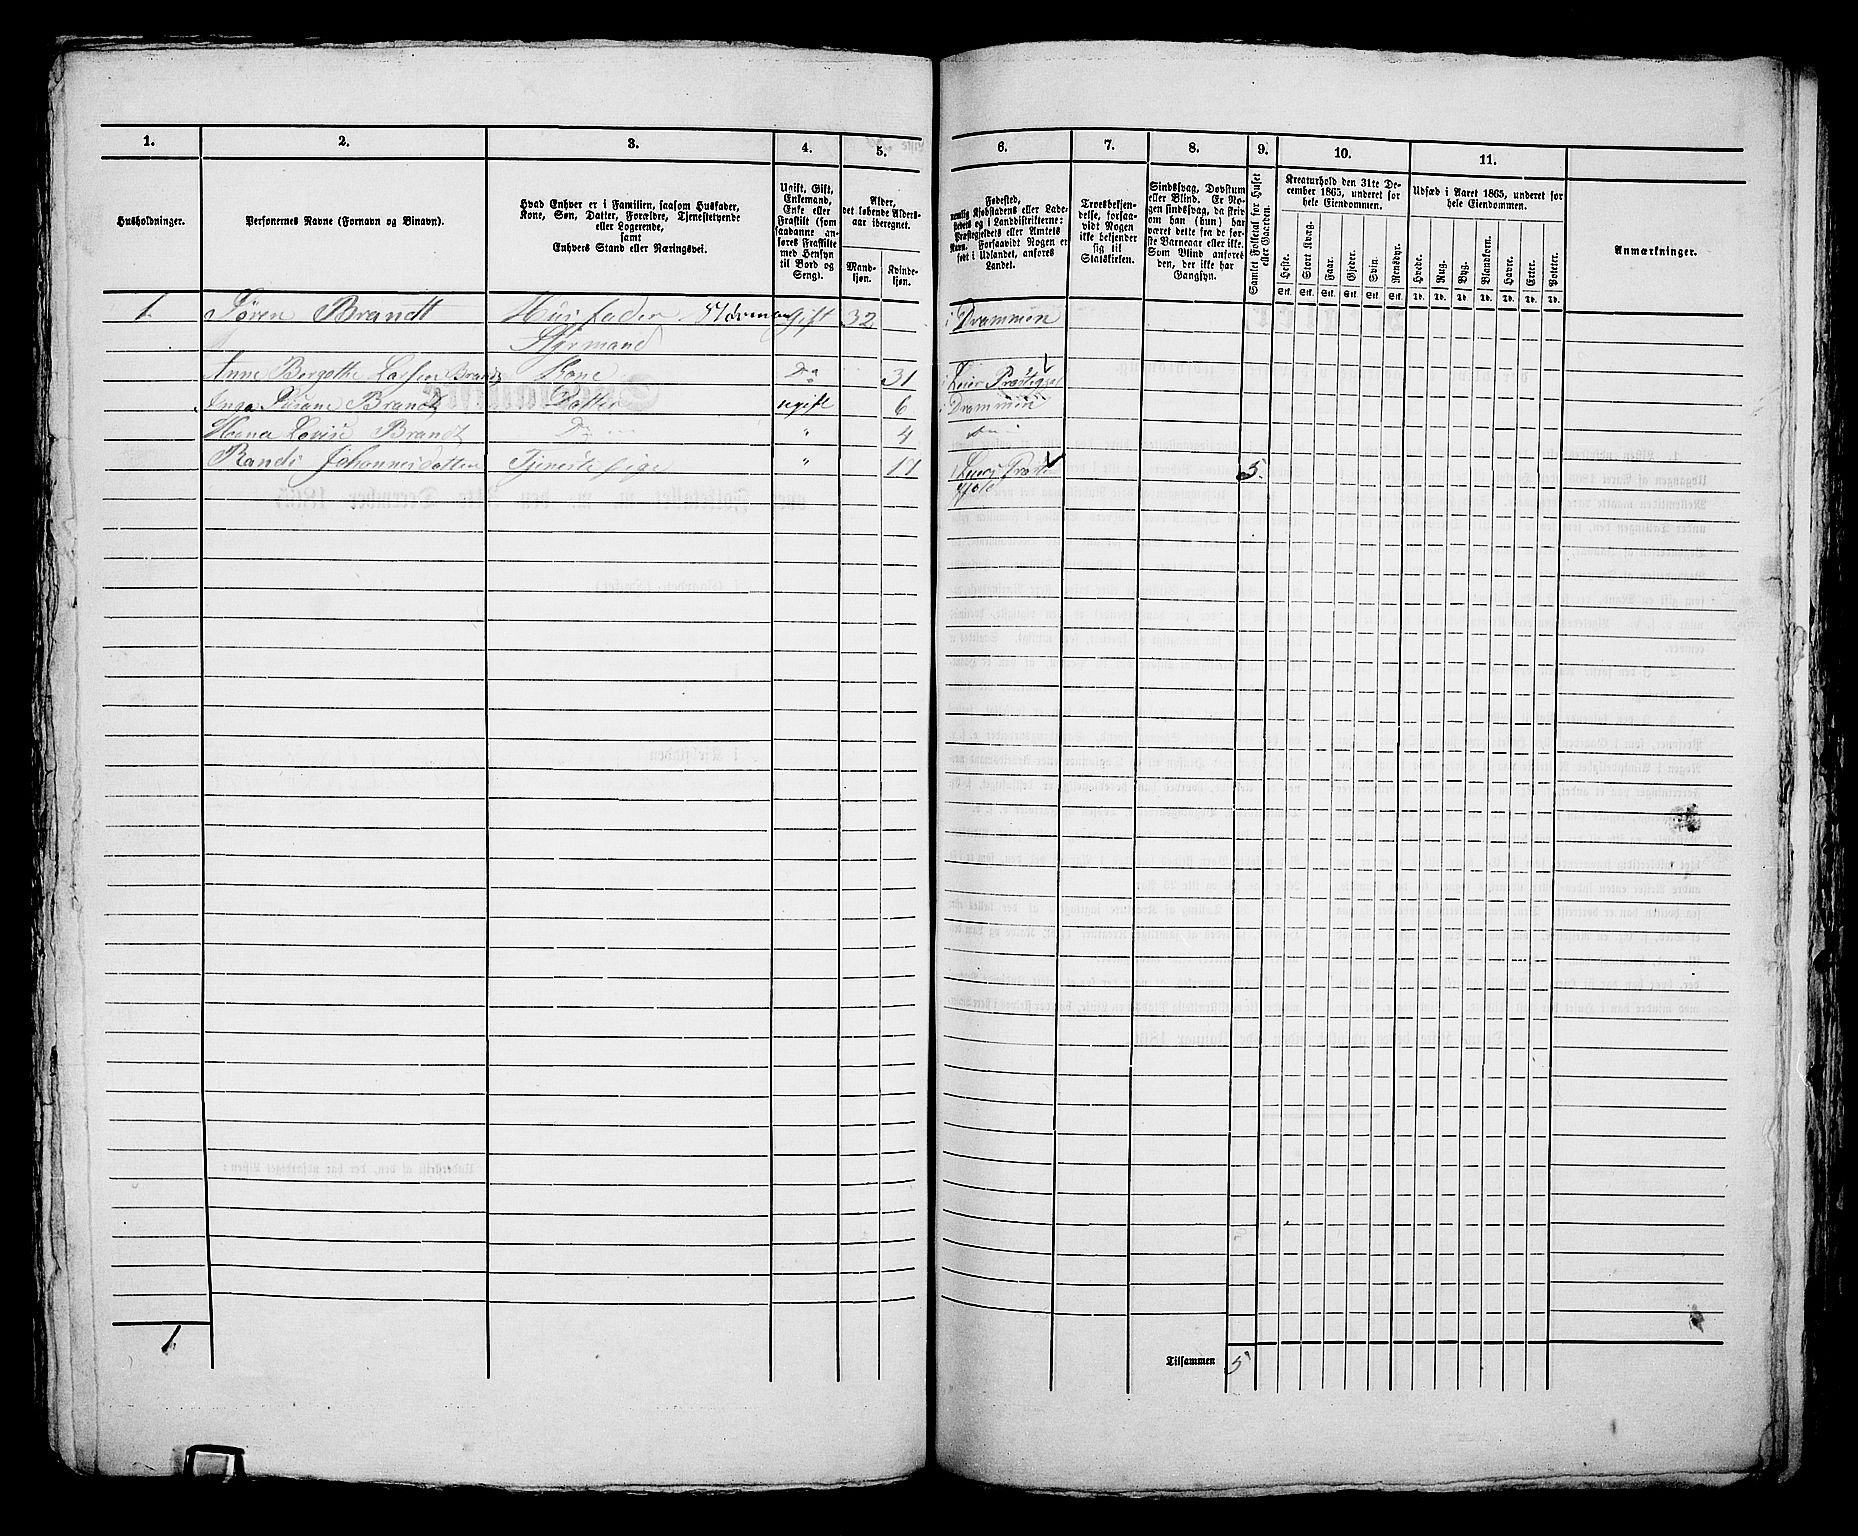 1.
2.
3.
4.
5.
6.
7.
8.
9.
10.
11.
Husholdninger.
Personernes Navne (Fornavn og Binavn).
Hvad Enhver er i Familien, saasom Husfader,
Kone, Søn, Datter, Forældre, Tjenestetyende
eller Logerende,
samt
Enhvers Stand eller Næringsvei.
Ugift, Gift,
Enkemand,
Enke eller
Fraskilt (som
saadanne an-
føres Fraskilte
med Hensyn
til Bord og
Seng).
Alder,
det løbende Alders-
aar iberegnet.
Mand-
kjøn.
Kvinde-
kjøn.
Fødested,
nemlig Kjøbstadens eller Lade-
stedets og i Landdistrikterne:
Præstegjeldets eller Amtets
Navn. Forsaavidt Nogen er
født i Udlandet, anføres
Landet.
Troesbekjen-
delse, forsaa-
vidt Nogen
ikke bekjender
sig til
Statskirken.
Sindssvag, Døvstum
eller Blind. Er No-
gen sindssvag, da skrives
om han (hun) har
været dette fra de før-
ste Barneaar eller ikke.
Som Blind anføres
den, der ikke har
Gangsyn.
Samlet Folketal for Huset
eller Gaarden.
Kreaturhold den 31te De-
cember 1865, underet for
hele Eiendommen.
Heste.
Stort Kvæg.
Faar.
Gjeder.
Svin.
Rensdyr.
Stk. Stk. Stk. Stk. Stk. Stk.
Udsæd i Aaret 1865, underet for
hele Eiendommen.
Hvede.
Rug.
Byg.
Blandkorn.
Havre.
Erter.
Poteter.
Td. Td. Td. Td. Td. Td. Td.
Anmærkninger.
1 Søren Brandt Husfader Gift 32 i Drammen
Styrmand
Anne Bergethe Larsen Brandt Kone Do 31 i Lier
Inga Brandt Datter ugift 6 i Drammen
Hana Lovise Brandt Do " 4
Randi Johannesdatter Tjenestepige " 17 5
1
Tilsammen 5